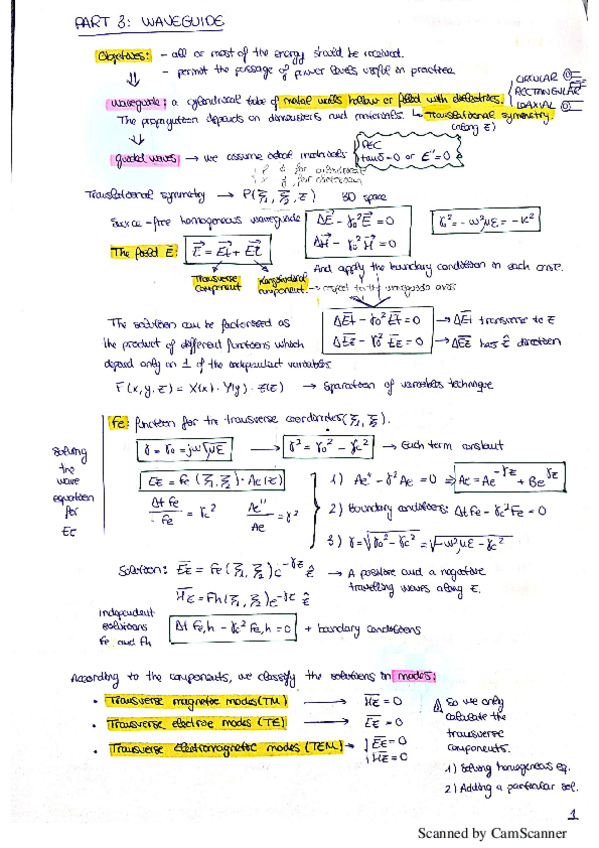 PART 3: WAVEGUIDE
Objectives: - all or most of the energy should be received.
- permit the passage of power levels useful in practice
waveguide: a cylindrical tube of metal walls hollow or filled with dielectrics.
CIRCULAR
RECTANGULAR
COAXIAL
The propagation depends on diameters and materials. ↳ Translational symmetry.
(along z)
guided waves → we assume ideal materials
PEC
tanδ = 0 or E'' = 0
Translational symmetry → P(ξ1, ξ2, z) 3D space
Source-free homogeneous waveguide
ΔE - γ0²E = 0
ΔH - γ0²H = 0
γ0² = -ω²με = -k²
The field E: E = Et + Ez
Transverse component
Longitudinal component. → respect to the waveguide axis
And apply the boundary condition in each case.
The solution can be factorised as
the product of different functions which
depend only on 1 of the independent variables.
ΔEt - γ0²Et = 0 → ΔEt transverse to z
ΔEz - γ0²Ez = 0 → ΔEz has ẑ direction
F(x,y,z) = X(x)·Y(y)·Z(z) → Separation of variables technique
Fe: function for the transverse coordinates (ξ1, ξ2).
Solving the wave equation for Ez
γ = γ0 = jω√με → γ² = γ0² - γc² → Each term constant
Ez = Fe(ξ1, ξ2)·Ae(z)
Δt Fe / Fe = γc² Ae'' / Ae = γ²
1) Ae'' - γ²Ae = 0 ⇒ Ae = Ae^-γz + Be^γz
2) Boundary conditions: ΔtFe - γc²Fe = 0
3) γ = √γ0² - γc² = √-ω²με - γc²
Solution: Ez = Fe(ξ1, ξ2)e^-γz ẑ → A positive and a negative
travelling waves along z.
Hz = Fh(ξ1, ξ2)e^-γz ẑ
independent solutions Fe and Fh
Δt Fe,h - γc² Fe,h = 0 + boundary conditions
According to the components, we classify the solutions in modes:
• Transverse magnetic modes (TM) → Hz = 0
• Transverse electric modes (TE) → Ez = 0
• Transverse electromagnetic modes (TEM) → Ez = 0
Hz = 0
So we only
calculate the
transverse
components.
1) Solving homogenous eq.
2) Adding a particular sol.
1
Scanned by CamScanner